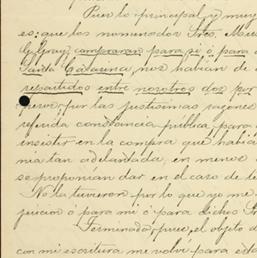 Pues lo principal, y muy
es: que los nomenorados Sres. Meu
G. Gray, compraran para sí ó para
Santa Catarina, nos habían de
repartidos entre nosotros dos por
pues, por las justísimas razones
referida constancia pública, para
insistir en la compra que había
mia tan adelantada, en menos
se proponían dar en el caso de te
No la tuvieron por lo que yo me
juicio ó para mi ó para dichos Sr
Terminado, pues, el objeto d
con mi escritura me volví para esta